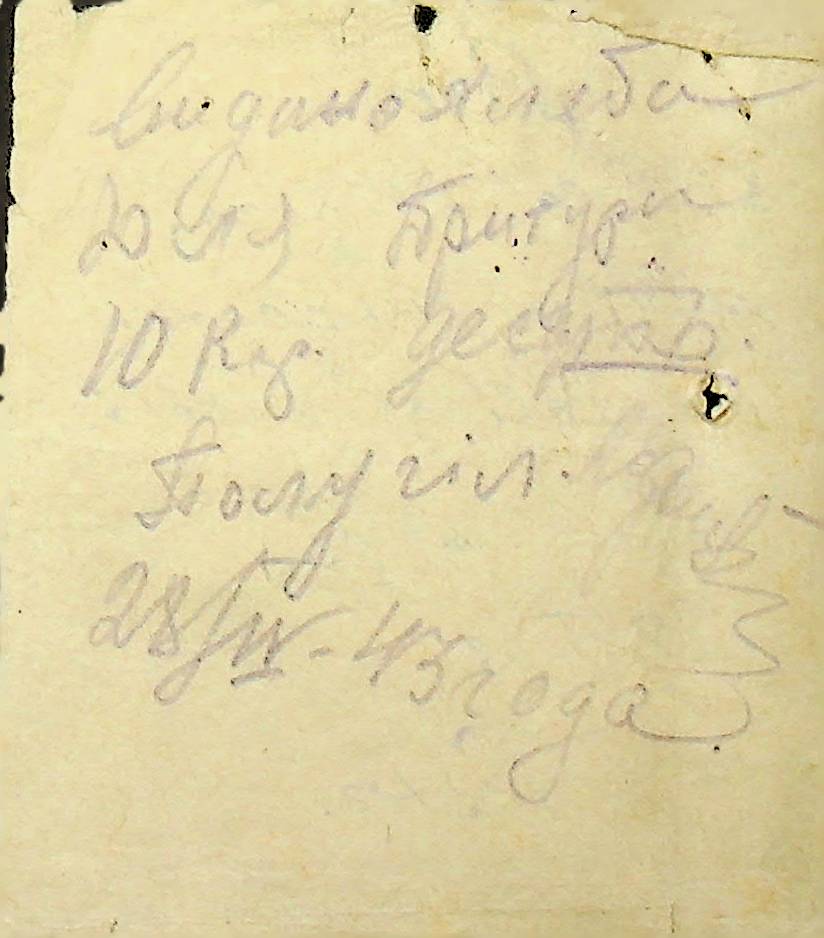 Видано хлеба
для Притури
10 кгр. десять.
Получил.
28/IV-43 года